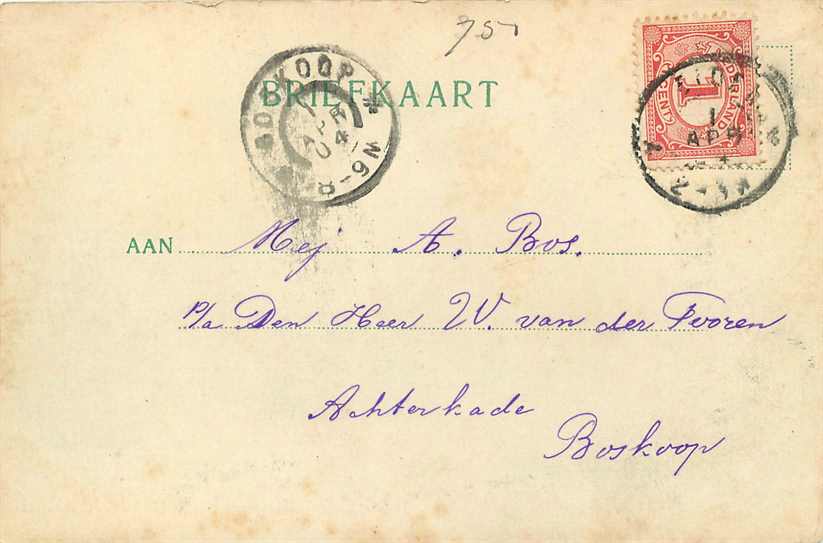 75
BRIEFKAART
BOSKOOP
1
APR
04
8-9N
NEDERLAND
1
CENT
1
APR
4
2-3N
AAN Mej A. Bos.
p/a Den Heer W. van der Tooren
Achterkade
Boskoop